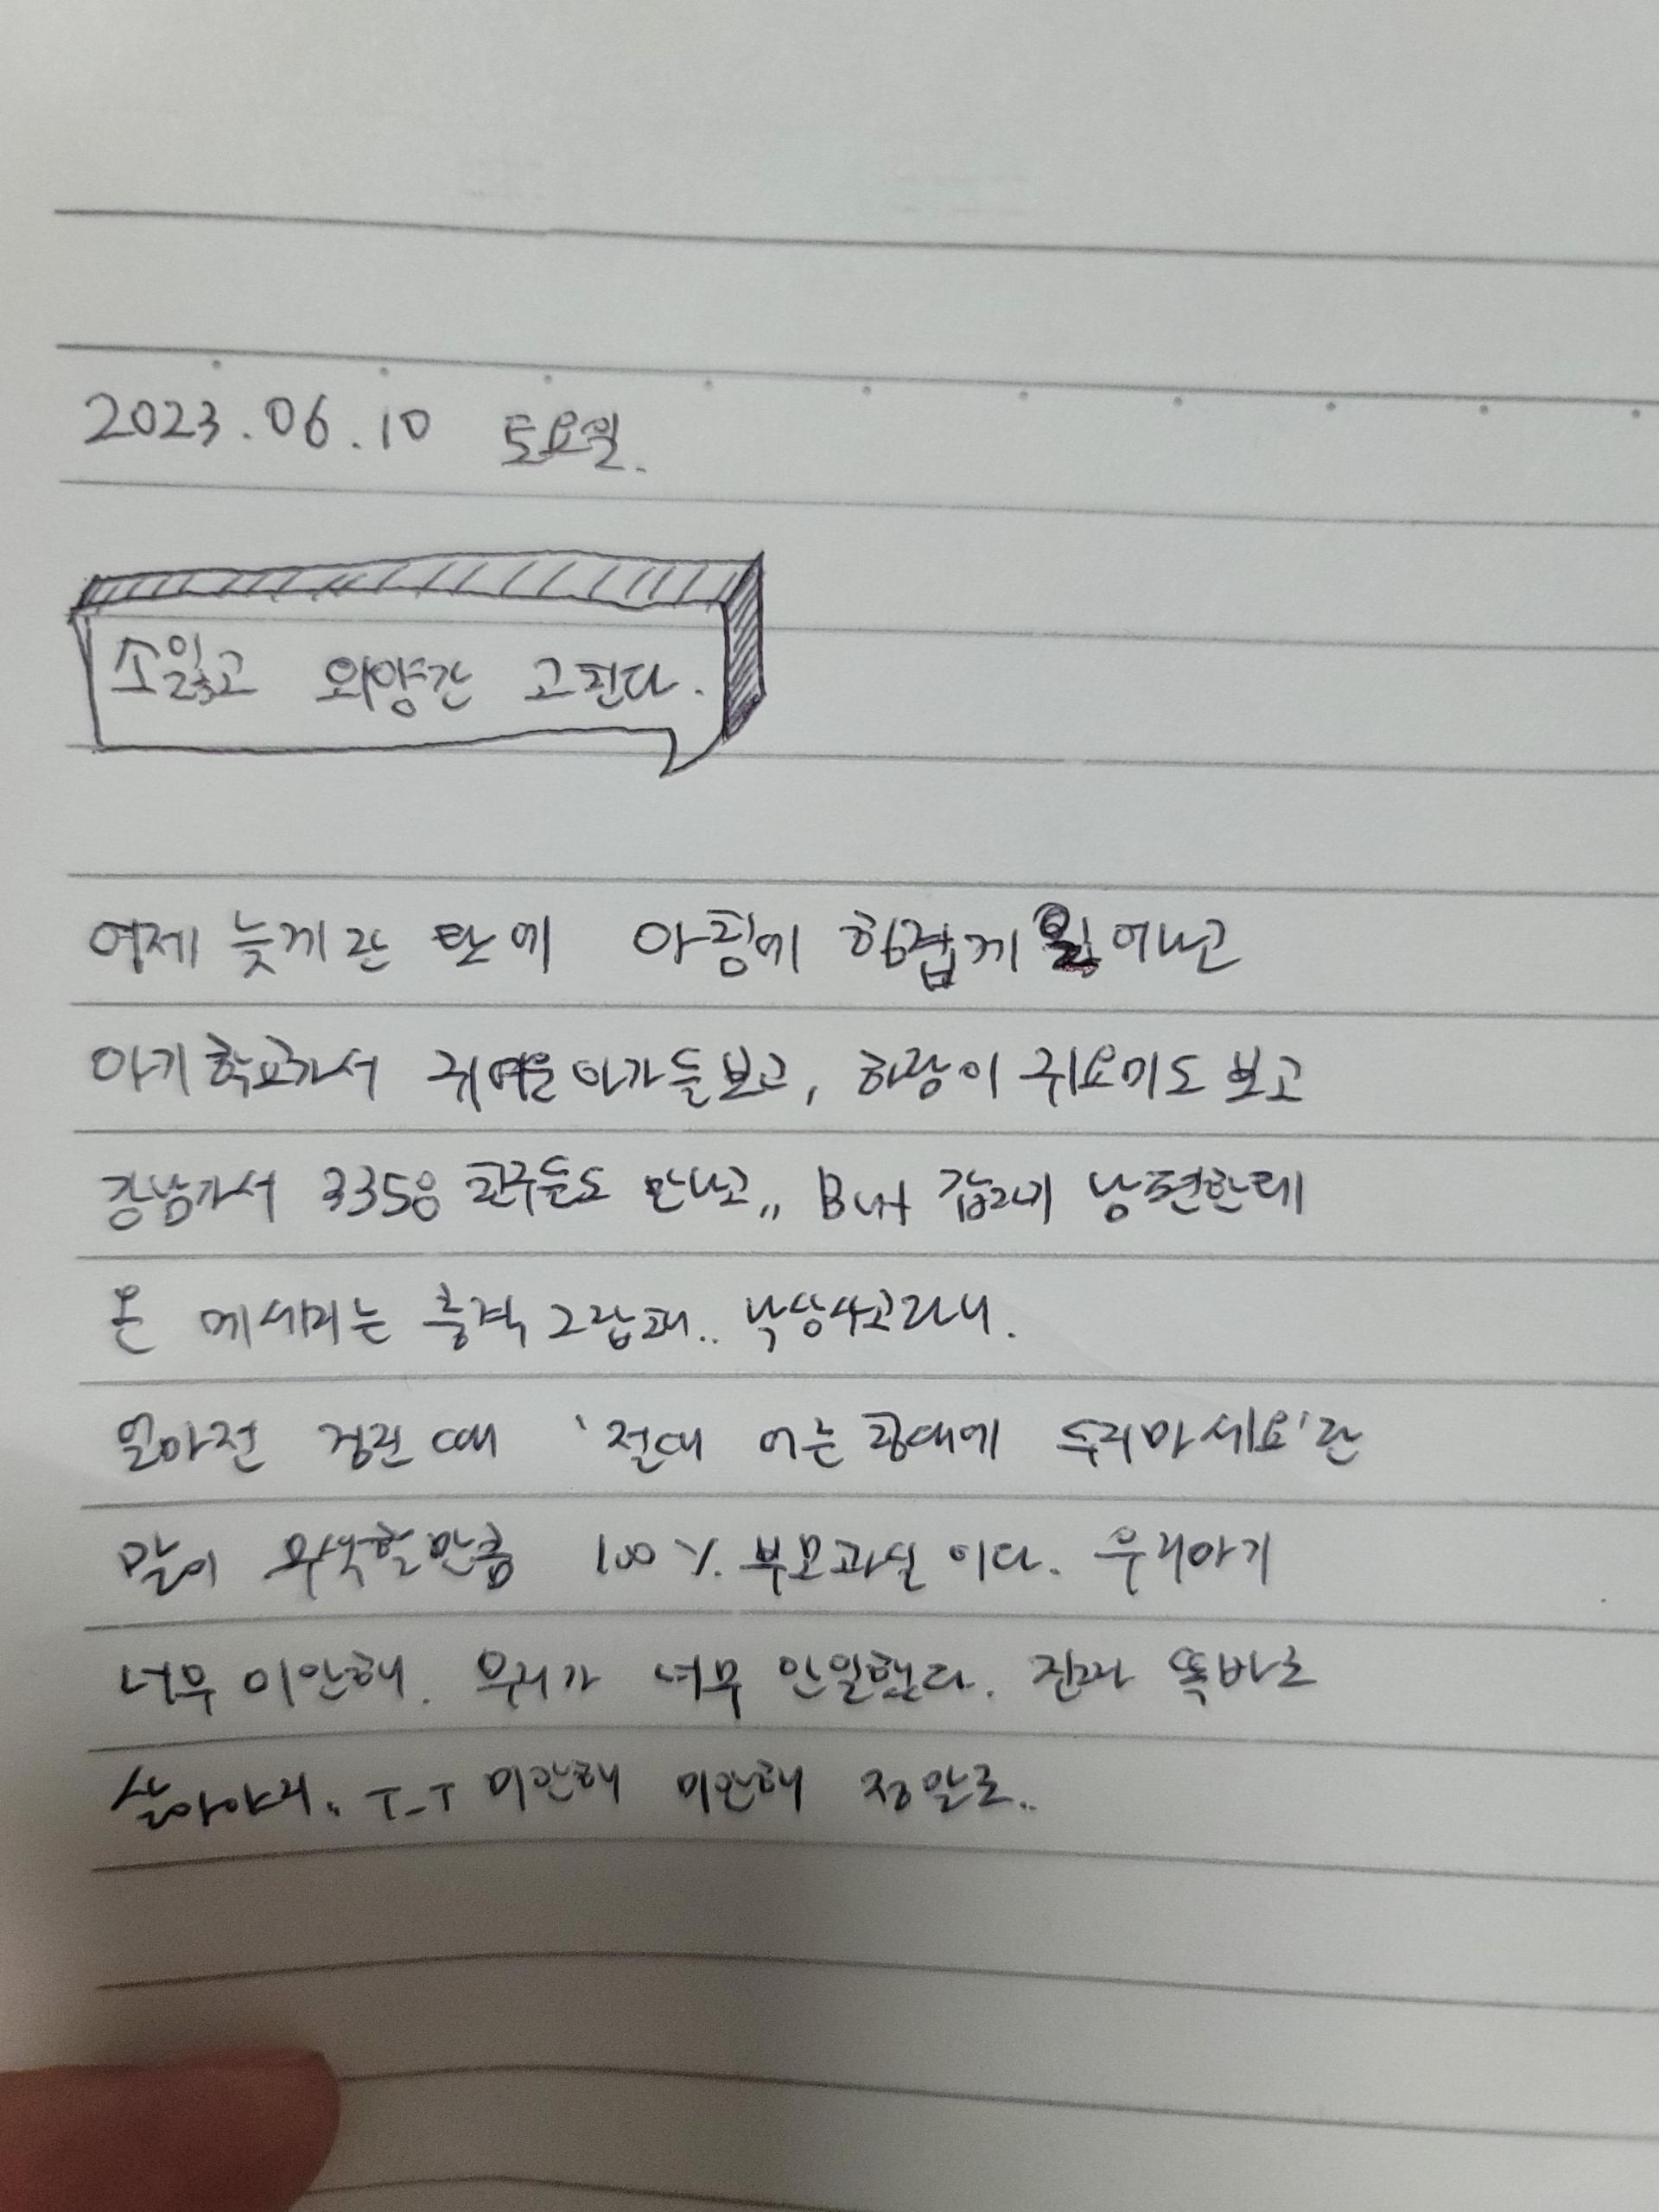 2023.06.10 토요일.
소잃고 외양간 고친다.
어제 늦게 잔 탓에 아침에 힘겹게 일어나고
아기학교가서 귀여운 아가들보고, 하랑이 귀요미도 보고
강남가서 친구들도 만나고,, But 갑자기 남편한테
온 메세지는 충격 그잡채.. 낙상사고라니.
얼마전 검진 때 '절대 어른침대에 두지마세요'란
말이 무색할만큼 100% 부모과실이다. 우리아기
너무 미안해. 우리가 너무 안일했다. 진짜 똑바로
살아야지.. T_T 미안해 미안해 정말로..